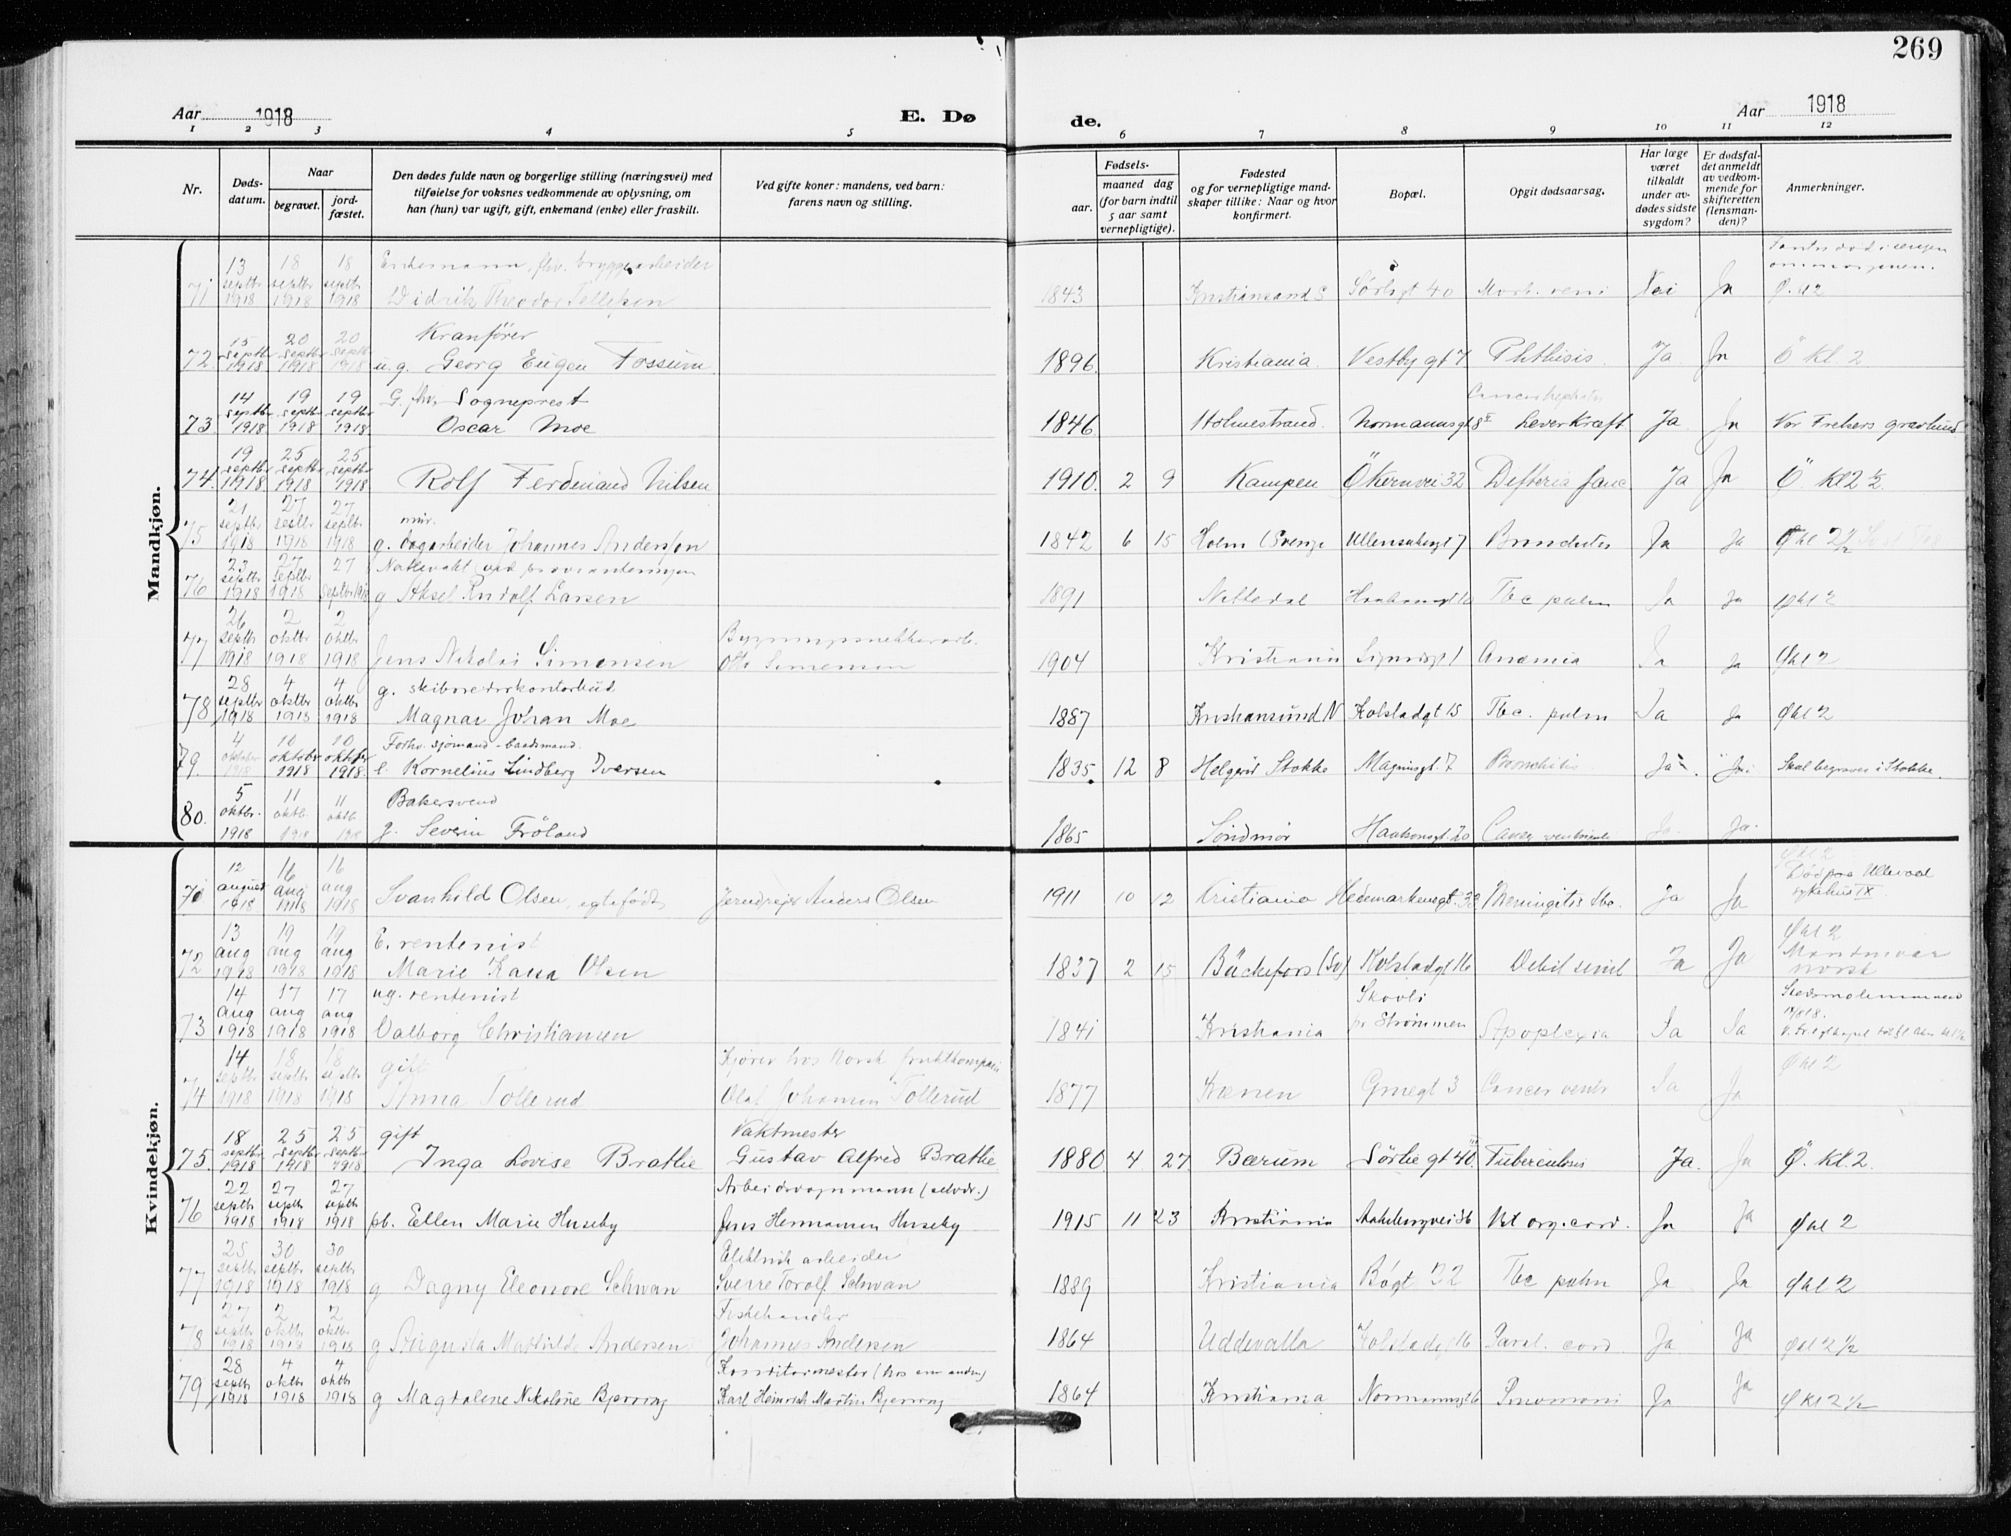 269
Aar 1918
E. Dø de.
Aar 1918
1 2 3 4 5 6 7 8 9 10 11 12
Nr.
Døds-
datum.
Naar
begravet.
jord-
fæstet.
Den dødes fulde navn og borgerlige stilling (næringsvei) med
tilføielse for voksnes vedkommende av oplysning, om
han (hun) var ugift, gift, enkemand (enke) eller fraskilt.
Ved gifte koner: mandens, ved barn:
farens navn og stilling.
Fødsels-
aar.
maaned dag
(for barn indtil
5 aar samt
vernepligtige).
Fødested
og for vernepligtige mand-
skaper tillike: Naar og hvor
konfirmert.
Bopæl.
Opgit dødsaarsag.
Har læge
været
tilkaldt
under av-
dødes sidste
sygdom?
Er dødsfal-
det anmeldt
av vedkom-
mende for
skifteretten
(lensman-
den)?
Anmerkninger.
Mandkjøn.
13 18 18 Enkemann, fhv. bryggearbeider
71 septbr 1918 septbr 1918 septbr 1918 Didrik Theodor Tellefsen 1843 Kristiansand S Sørligt 40 Morb. Nei Ja Ø. kl 2
15 20 20 Kranfører
72. septbr 1918 septbr 1918 septbr 1918 u.g. Georg Eugen Fossum 1896. Kristiania. Vestby gt 7 Phthisis. Ja Ja Ö kl. 2
14 19 19 G. fhv. Sogneprest
73 septbr 1918 septbr 1918 septbr 1918. Oscar Moe 1846 Holmestrand. Normannsgt 8 Leverkræft. Ja Ja Vor Frelsers gravlund
19 25 25
74. septbr 1918 septbr 1918 septbr 1918 Rolf Ferdinand Nilsen 1910. 2 9 Kampen Økernvei 32 Defteria fauc Ja Ja Ö. Kl 2 ½
21 27 27 mur.
75 septbr 1918 septbr 1918 septbr 1918 g. dagarbeider Johannes Andersson 1842 6 15 Holm (Sverige Ullensakergt 7 Ja Ja Ø kl 2½
23 27 27 Nattevakt ved provianteringen
76 septbr 1918 septbr 1918 septbr 1918 g Aksel Rudolf Larsen 1891 Nittedal Haakonsgt Tbc pulm Ja Ja Ø kl 2
26 2 2 Bygningssnekkerarb.
77 septbr 1918 oktbr 1918 oktbr 1918 Jens Nikolai Simensen Otto Simensen 1904 Kristiania Sigurdsgt 1 Anæmia Ja Ja Ø kl 2
28 4 4 g.
78 septbr 1918 oktbr 1918 oktbr 1918 Magnar Johan Moe 1887 Kristiansund N Kolstadgt 15 Tbc. pulm Ja Ja Ø kl 2
4 10 10 Forhv. sjømand - baadsmand.
79. oktober 1918 oktober 1918 oktober 1918. e. Kornelius Lindberg Iversen 1835. 12 8 Helgerød Stokke Magnusgt. 7 Bronchitis Ja. Ja. Skal begraves i Stokke.
5 11 11 Bakersvend
80. oktbr. 1918 oktb. 1918 oktb. 1918 g. Severin Fröland 1865 Söndmör Haakonsgt. 20 Cancer ventriculi Ja. Ja.
Kvindekjøn.
12 16 16 Ø kl 2
71 august 1918 aug 1918 aug 1918 Svanhild Olsen, egtefødt Anders Olsen 1911 10 12 Kristiania Hedemarkensgt. Meningitis tbc. Ja Ja Död paa Ullevaal sykehus IX.
13 19 19 E. rentenist Ø kl 2
72 aug 1918 aug 1918 aug 1918 Marie Kaisa Olsen 1837 2 15 Bäckefors (Sv) Kolstadgt 16 Debil. senil Ja Ja Manden var norsk
14 17 17 ug. rentenist Skovli
73 aug 1918 aug 1918 aug 1918 Valborg Christiansen 1841 Kristiania pr Strømmen Apoplexia Ja Ja
14 18 18 gift Kjører hos Norsk fruktkompani Ø kl 2
74 septbr 1918 septbr 1918 septbr 1918 Anna Tollerud Olaf Johansen Tollerud 1877 Gruegt 3 Cancer ventr Ja Ja
18 25 25 gift Vaktmester
75. septbr 1918 septbr 1918 septbr 1918 Inga Lovise Brathe Gustav Alfred Brathe 1880. 4 27 Bærum Sörlie gt 40. Tuberculosis Ja. Ja Ö. kl. 2.
22 27 27
76 septbr 1918 septbr 1918 septbr 1918 pb. Ellen Marie Huseby Jens Hermansen Huseby 1915 11 23 Kristiania Aakebergvei 36 Vit. org. cord. Ja Ja Ø kl 2
25 30 30 Elektrisk arbeider
77 septbr 1918 septbr 1918 septbr 1918 g Dagny Eleonore Schwan Sverre Torolf Schwan 1889 Kristiania Bøgt 32 Tbc pulm Ja Ja Ø kl 2
27 2 2 Fiskehandler
78 septbr 1918 oktbr 1918 oktbr 1918 g Augusta Mathilde Andersen Johannes Andersen 1864 Uddevalla Kolstadgt 16 Paral. cord. Ja Ja Ø kl 2 ½
28 4 4 Konditormester (hos en anden)
79 septbr 1918 oktbr 1918 oktbr 1918 g Magdalene Nikoline Bjerring Karl Heinrich Martin Bjerring 1864 Kristiania Normannsgt 6 Pneumoni Ja Ja Ø kl 2 ½